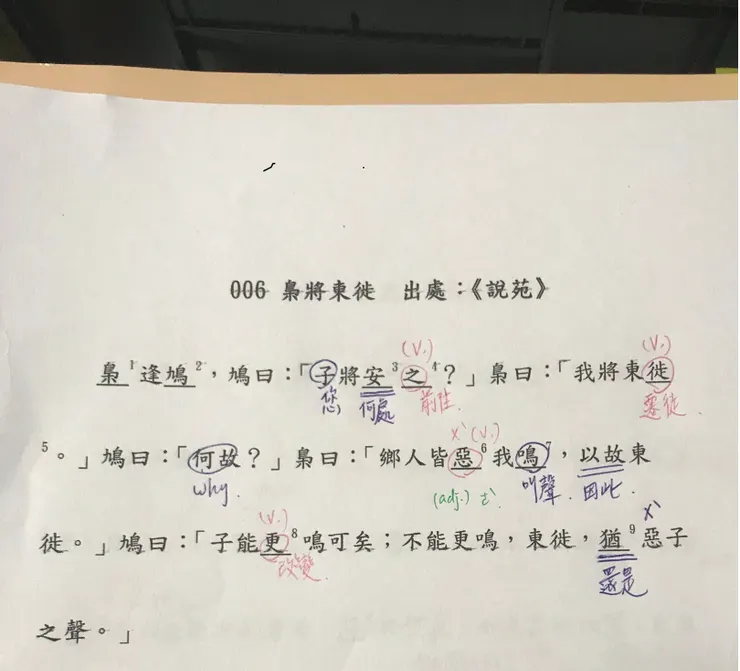 006 梟將東徙 出處：《說苑》
(V.) (V.)
梟¹逢鳩²，鳩曰：「子將安³之⁴？」梟曰：「我將東徙
您 何處 前往. 遷徒.
ㄨˋ (V.)
⁵。」鳩曰：「何故？」梟曰：「鄉人皆惡⁶我鳴⁷，以故東
why. (adj.) ㄜˋ 叫聲. 因此.
(V.) ㄨˋ
徙。」鳩曰：「子能更⁸鳴可矣；不能更鳴，東徙，猶⁹惡子
改變. 還是
之聲。」